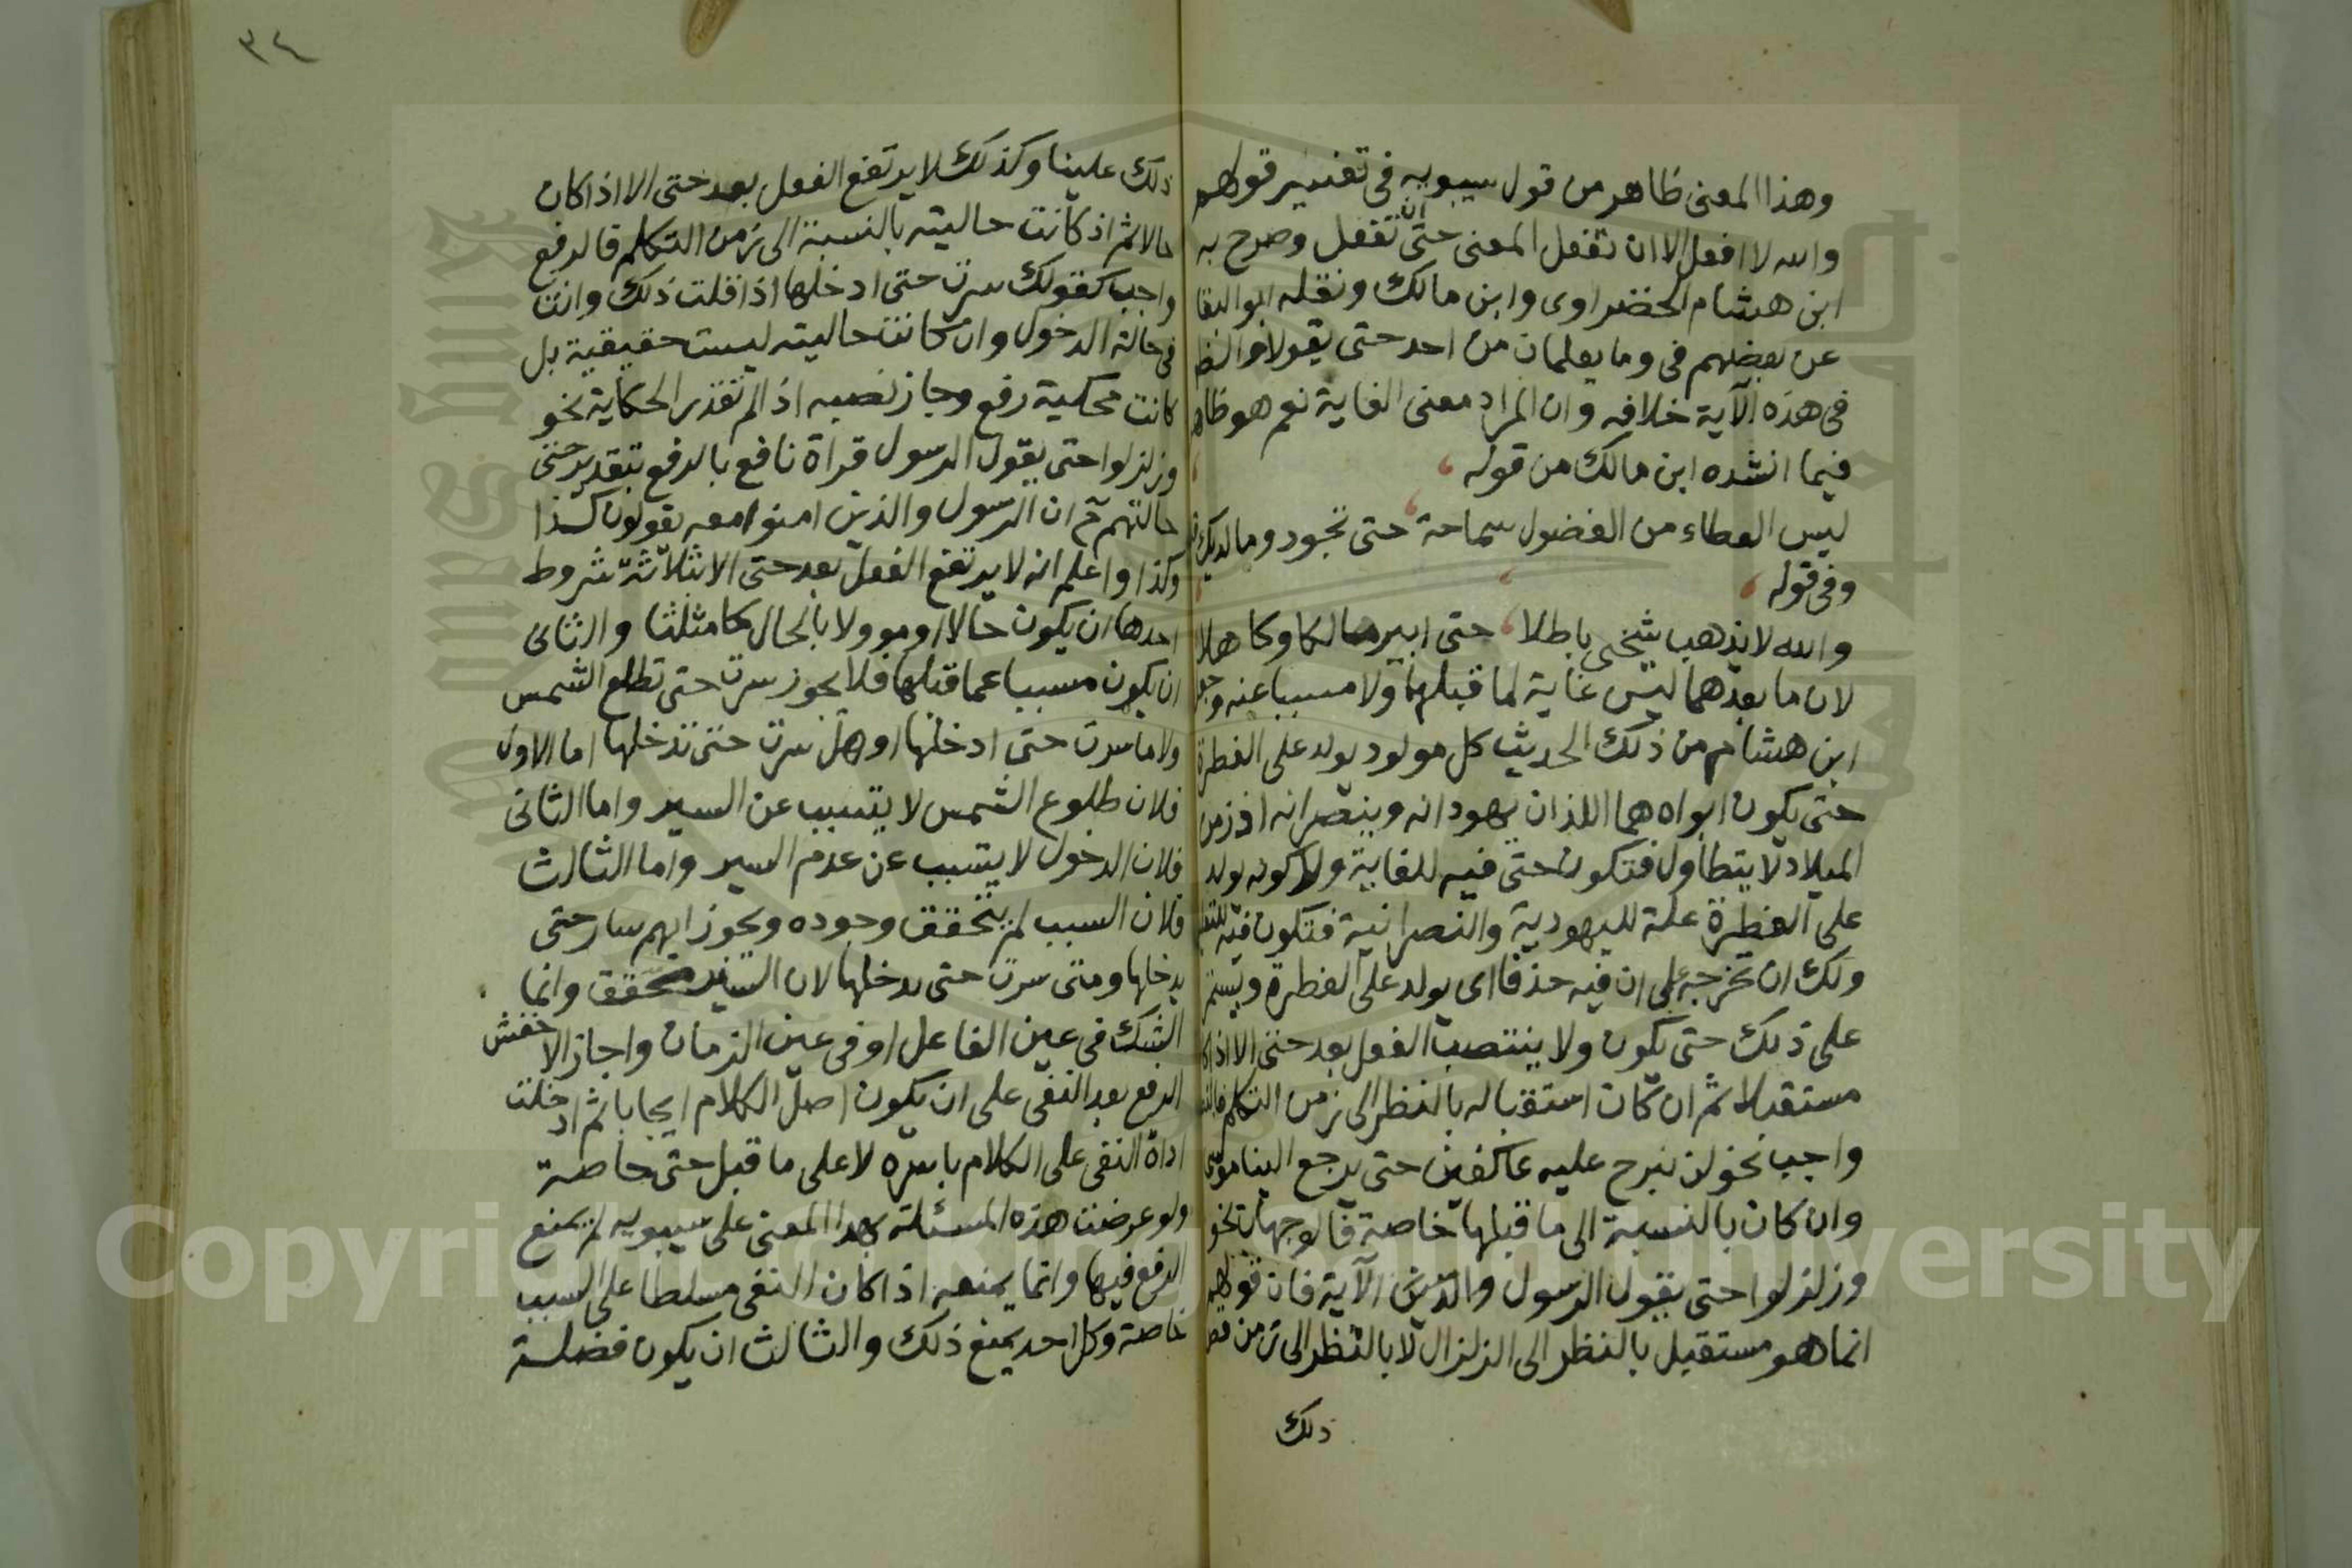 وهذا المعنى ظاهر من قول سيبويه فى تفسير قولهم
والله لا افعل الا ان تفعل المعنى حتى ان تفعل وصرح به
ابن هشام الخضراوى وابن مالك ونقله ابو البقا
عن بعضهم فى وما يعلمان من احد حتى يقولا والظ
فى هذه الآية خلافه وان المراد معنى الغاية نعم هو ظاهر
فيما انشده ابن مالك من قوله
ليس العطاء من الفضول سماحة حتى تجود وما لديك
وفى قوله
والله لا يذهب شيخى باطلا حتى ابير مالكا وكاهلا
لان ما بعدهما ليس غاية لما قبلهما ولا مسببا عنه وجعل
ابن هشام من ذلك الحديث كل مولود يولد على الفطرة
حتى يكون ابواه هما اللذان يهودانه وينصرانه اذ زمن
الميلاد لا يتطاول فتكون حتى فيه للغاية ولا كونه يولد
على الفطرة علة لليهودية والنصرانية فتكون فيه للتعل
ولك ان تخرجه على ان فيه حذفا اى يولد على الفطرة ويستمر
على ذلك حتى يكون ولا ينتصب الفعل بعد حتى الا اذا كا
مستقبلا ثم ان كان استقباله بالنظر الى زمن التكلم فالنصب
واجب نحو لن نبرح عليه عاكفين حتى يرجع الينا موسى
وان كان بالنسبة الى ما قبلها خاصة فالوجهان نحو
وزلزلوا حتى يقول الرسول والذين الآية فان قولهم
انما هو مستقبل بالنظر الى الزلزال لا بالنظر الى زمن قص
ذلك
٣٤
ذلك علينا وكذلك لا يرتفع الفعل بعد حتى الا اذا كان
حالا ثم اذ كانت حاليته بالنسبة الى زمن التكلم فالرفع
واجب كقولك سرت حتى ادخلها اذا قلت ذلك وانت
فى حالة الدخول وان كانت حاليته ليست حقيقية بل
كانت محكية رفع وجاز نصبه اذا لم تقدر الحكاية نحو
وزلزلوا حتى يقول الرسول قراة نافع بالرفع بتقدير حتى
حالتهم ح ان الرسول والذين امنوا معه يقولون كذا
وكذا واعلم انه لا يرتفع الفعل بعد حتى الا بثلاثة شروط
احدها ان يكون حالا او موولا بالحال كما مثلنا والثانى
ان يكون مسببا عما قبلها فلا يجوز سرت حتى تطلع الشمس
ولا ما سرت حتى ادخلها او هل سرت حتى تدخلها اما الاول
فلان طلوع الشمس لا يتسبب عن السير واما الثانى
فلان الدخول لا يتسبب عن عدم السير واما الثالث
فلان السبب لم يتحقق وجوده ويجوز ايهم سار حتى
يدخلها ومتى سرت حتى يدخلها لان السير محقق وانما
الشك فى عين الفاعل او فى عين الزمان واجاز الاخفش
الرفع بعد النفى على ان يكون اصل الكلام ايجابا ثم ادخلت
اداة النفى على الكلام باسره لا على ما قبل حتى خاصة
ولو عرضت هذه المسئلة بهذا المعنى على سيبويه لم يمنع
الرفع فيها وانما يمنعه اذا كان النفى مسلطا على السبب
خاصة وكل احد يمنع ذلك والثالث ان يكون فضلة